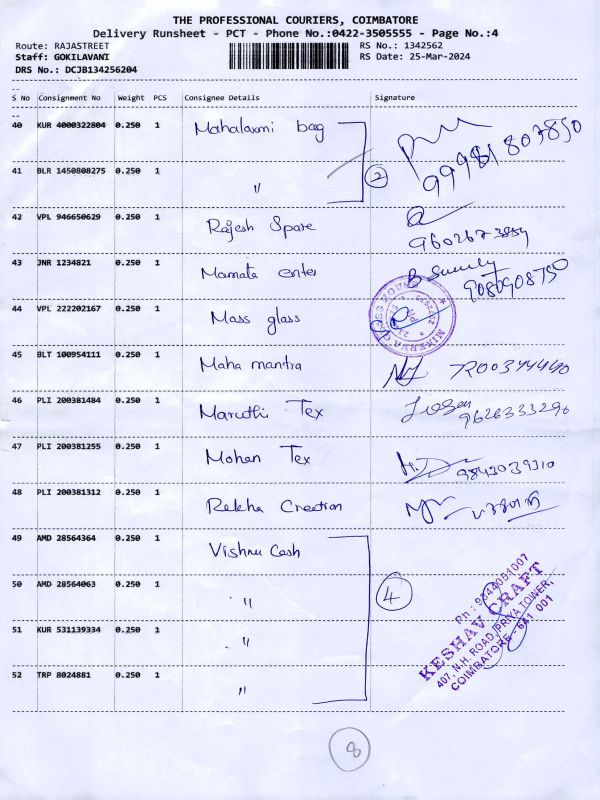 THE PROFESSIONAL COURIERS, COIMBATORE
Delivery Runsheet - PCT - Phone No.:0422-3505555 - Page No.:4
Route: RAJASTREET RS No.: 1342562
Staff: GOKILAVANI RS Date: 25-Mar-2024
DRS No.: DCJB134256204
S No Consignment No Weight PCS Consignee Details Signature
40 KUR 4000322804 0.250 1 Mahalaxmi bag
99981803850
41 BLR 1450808275 0.250 1 "
2
42 VPL 946650629 0.250 1 Rajesh Spare
9602673854
43 JNR 1234821 0.250 1 Mamata enter
9080908750
44 VPL 222202167 0.250 1 Mass glass
MINERVA GLASS HOUSE
45 BLT 100954111 0.250 1 Maha mantra
46 PLI 200381484 0.250 1 Maruthi Tex
9626333290
47 PLI 200381255 0.250 1 Mohan Tex
9843039310
48 PLI 200381312 0.250 1 Rekha Creation
49 AMD 28564364 0.250 1 Vishnu Cash
50 AMD 28564063 0.250 1 "
4
51 KUR 531139334 0.250 1 "
52 TRP 8024881 0.250 1 "
Ph : 9344051007
KESHAV CRAFT
407, N.H. ROAD, PRIYA TOWER,
COIMBATORE - 641 001
8